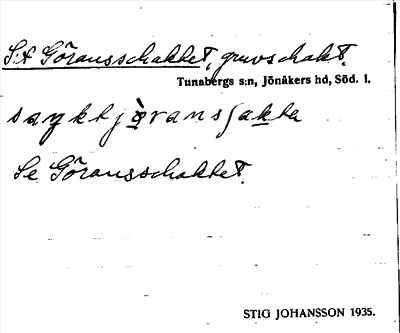 S:t Göransschaktet, gruvschakt.
Tunabergs s:n, Jönåkers hd, Söd. l.
saŋktjò̱ransʃakta
Se Göransschaktet.
STIG JOHANSSON 1935.